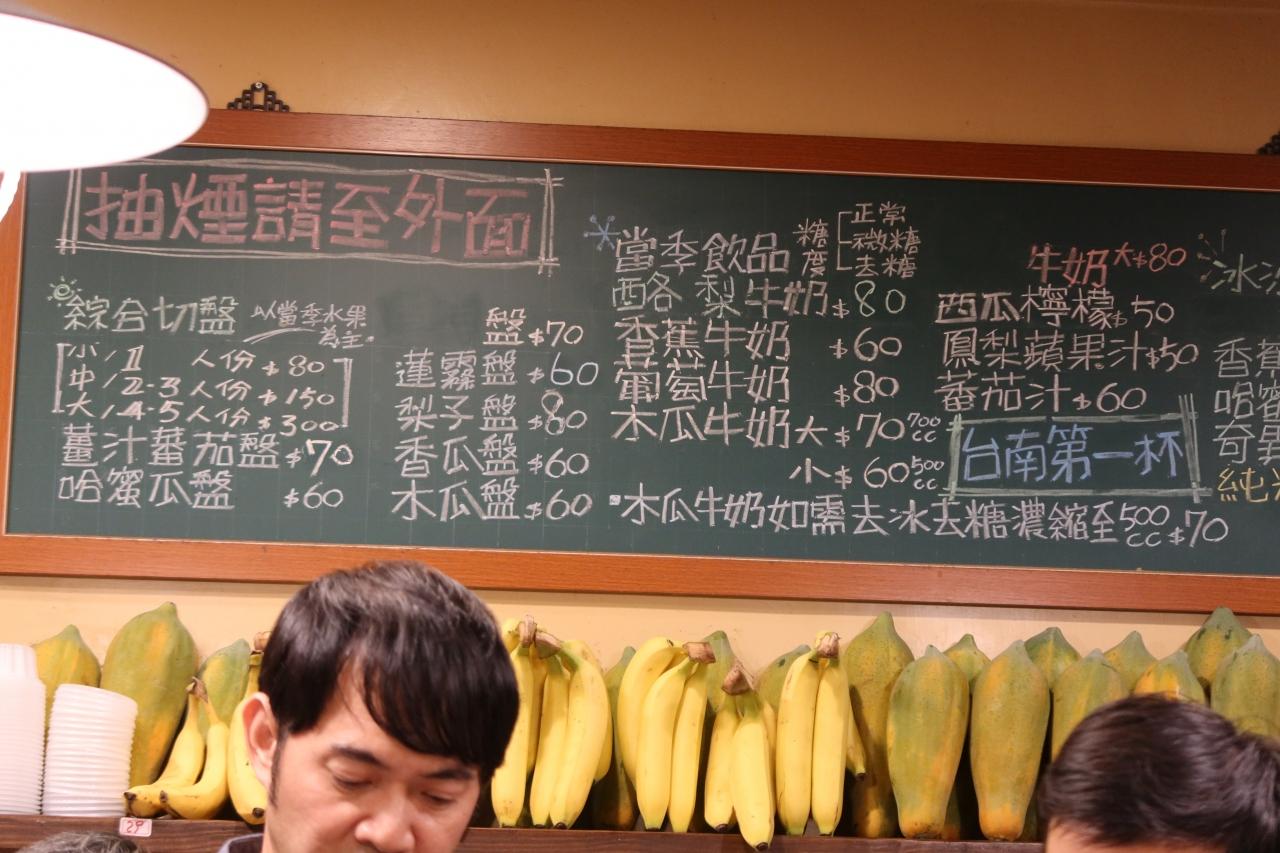 抽煙請至外面
綜合切盤 以當季水果為主.
小/1 人份 $80
中/2-3 人份 $150
大/4-5 人份 $300
薑汁蕃茄盤 $70
哈蜜瓜盤 $60
盤 $70
蓮霧盤 $60
梨子盤 $80
香瓜盤 $60
木瓜盤 $60
當季飲品 糖度 正常 微糖 去糖
西洛梨牛奶 $80
香蕉牛奶 $60
葡萄牛奶 $80
木瓜牛奶 大 $70 700cc
小 $60 500cc
木瓜牛奶如需去冰去糖濃縮至500cc $70
牛奶大$80
西瓜檸檬 $50
鳳梨蘋果汁 $50
蕃茄汁 $60
台南第一杯
冰
香蕉
哈蜜
奇異
純
29